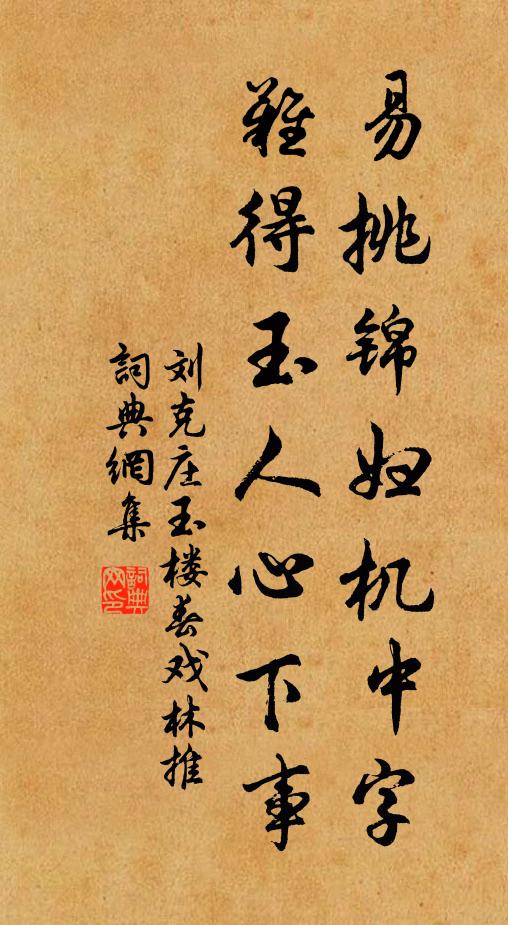 易挑锦妇机中字
難得玉人心下事
刘克庄玉楼春戏林推
詞典網集
詞典网印